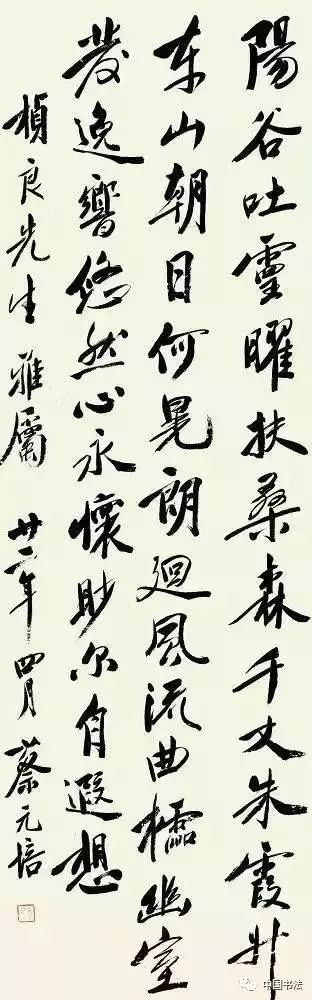 陽谷吐靈曜扶桑森千丈朱霞升
东山朝日何晃朗迴風流曲櫺幽室
發逸響悠然心永懷眇尔自遐想
楨良先生雅屬 廿二年四月 蔡元培
中国书法